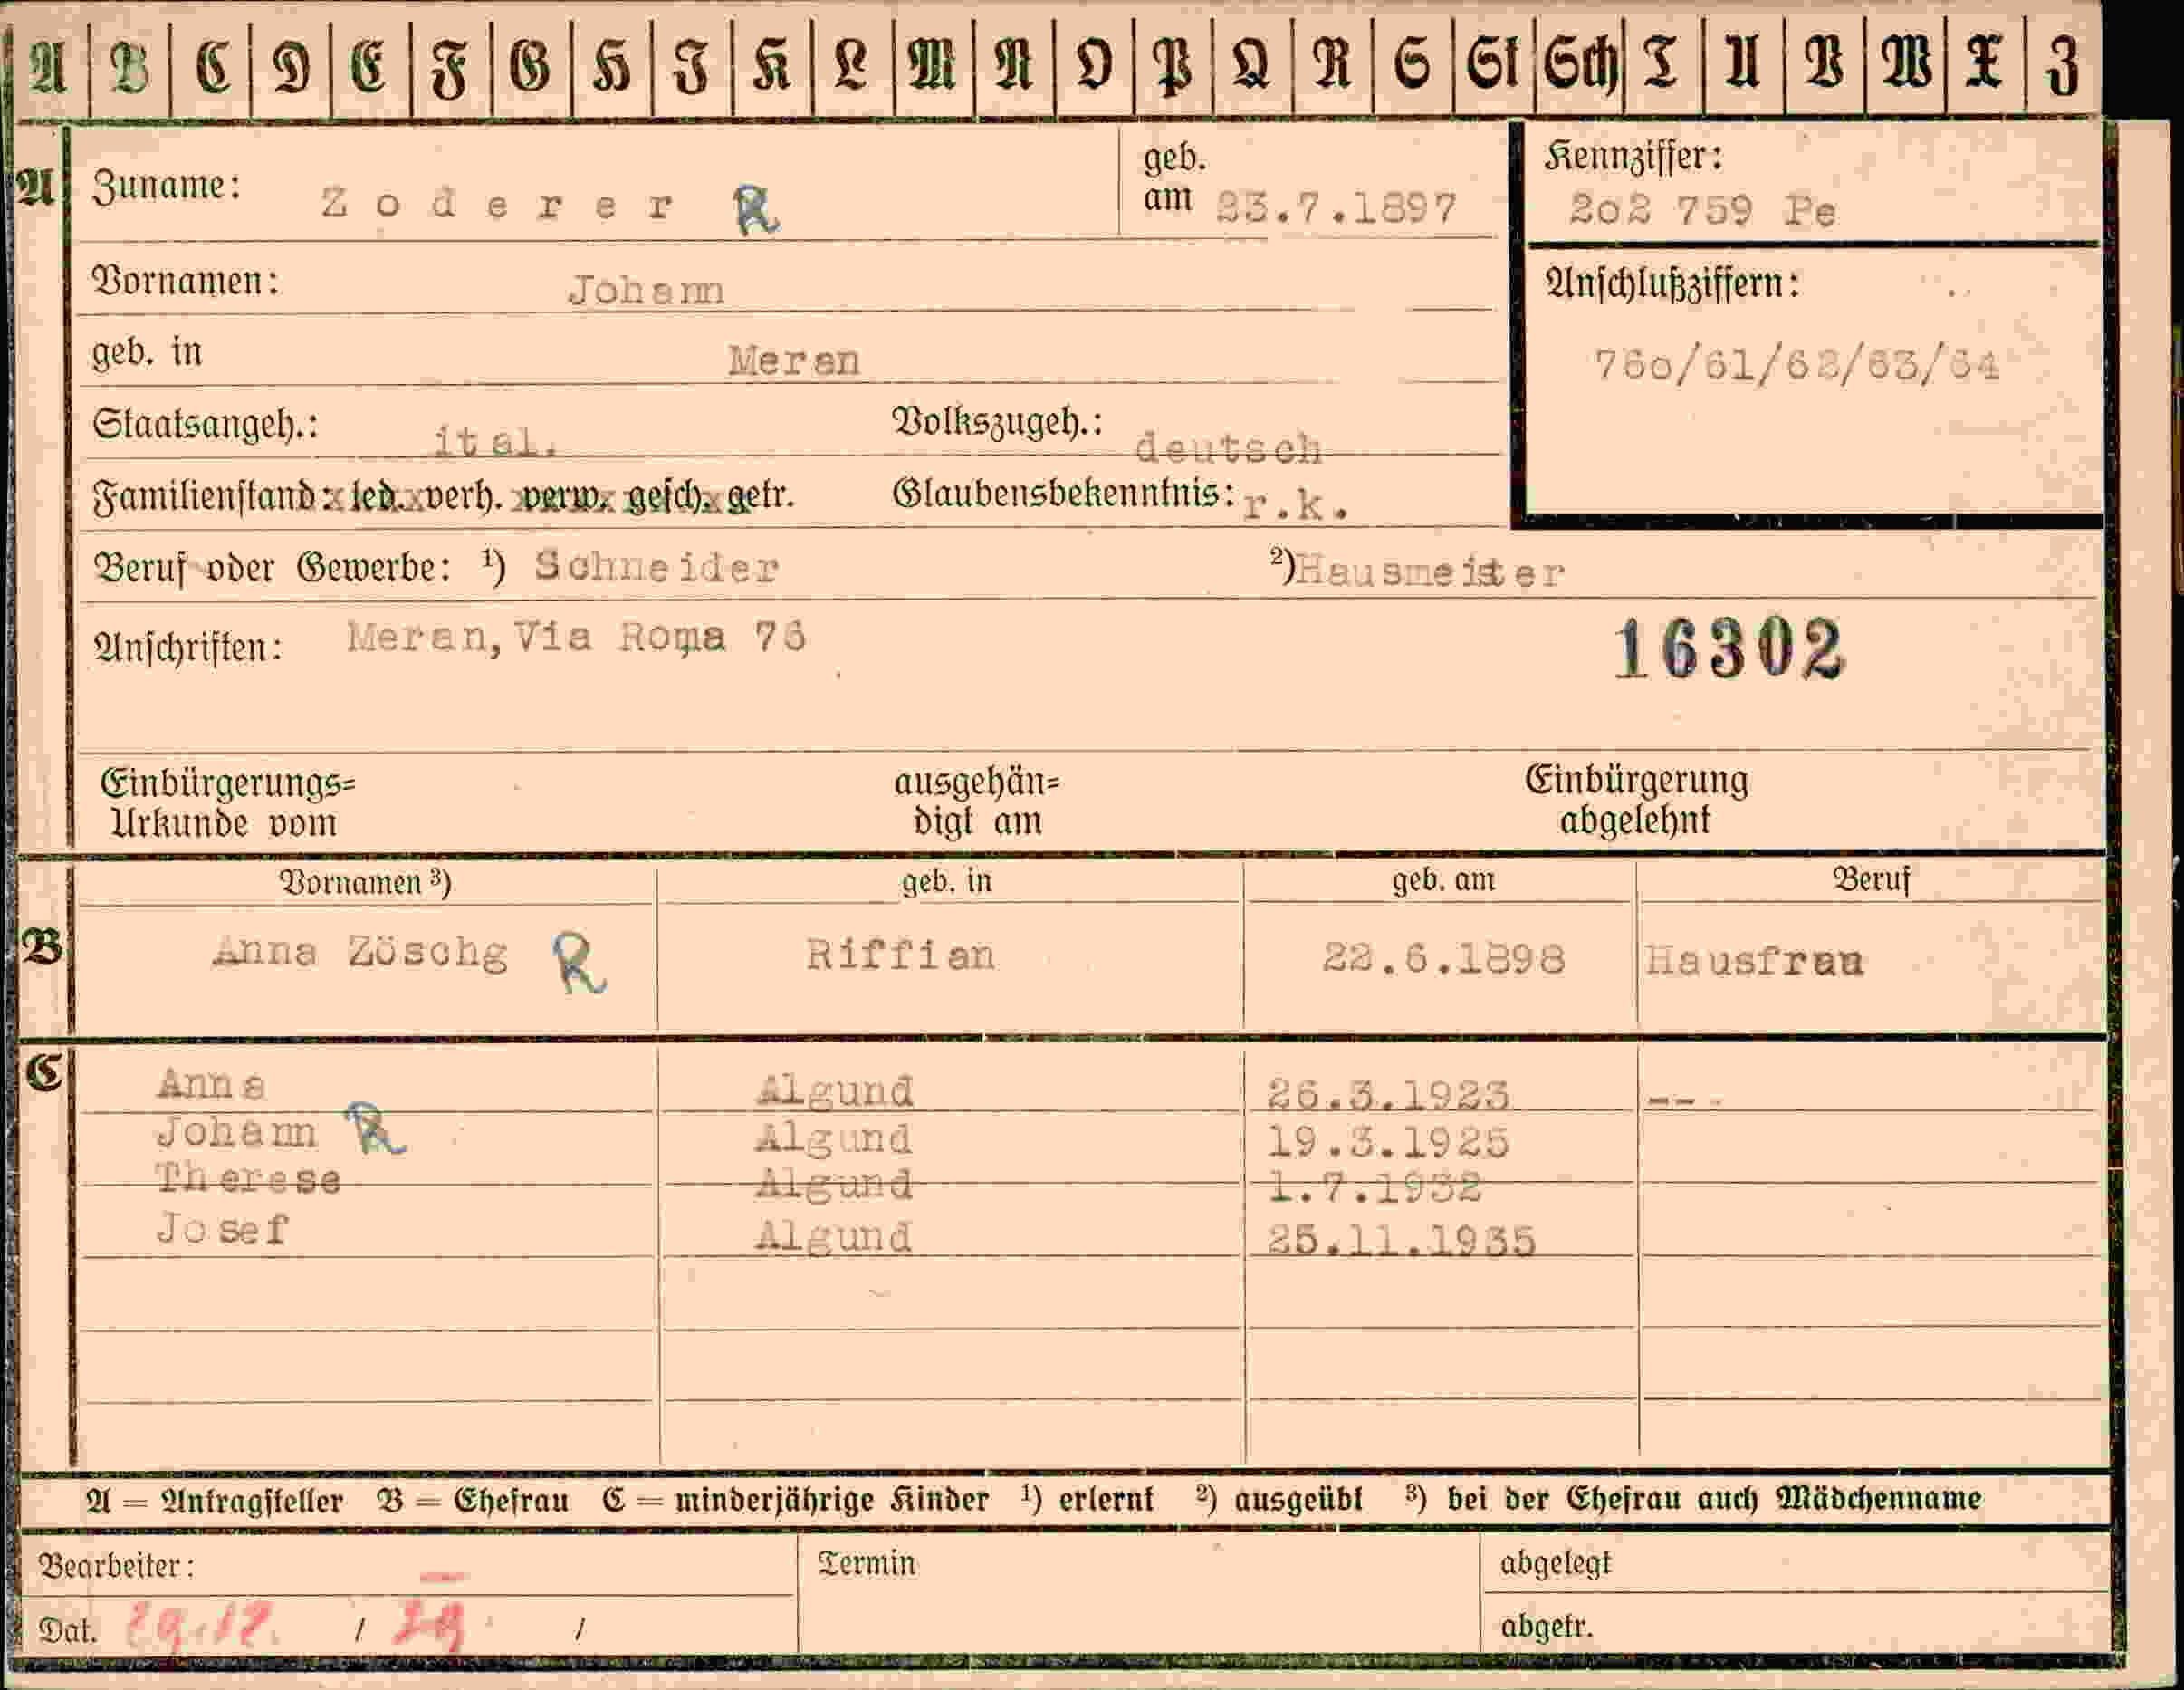 A B C D E F G H J K L M N O P Q R S St Sch T U V W X Z
A Zuname: Zoderer R geb. am 23.7.1897
Kennziffer:
2o2 759 Pe
Vornamen: Johann
Anschlußziffern:
geb. in Meran
76o/61/62/63/64
Staatsangeh.: ital. Volkszugeh.: deutsch
Familienstand: led. verh. verw. gesch. getr. Glaubensbekenntnis: r.k.
Beruf oder Gewerbe: ¹) Schneider ²) Hausmeister
Anschriften: Meran, Via Roma 76
16302
Einbürgerungs= ausgehän= Einbürgerung
Urkunde vom digt am abgelehnt
Vornamen ³) geb. in geb. am Beruf
B Anna Zöschg R Riffian 22.6.1898 Hausfrau
C Anna Algund 26.3.1923 ---
Johann R Algund 19.3.1925
Therese Algund 1.7.1932
Josef Algund 25.11.1935
A = Antragsteller B = Ehefrau C = minderjährige Kinder ¹) erlernt ²) ausgeübt ³) bei der Ehefrau auch Mädchenname
Bearbeiter: Termin abgelegt
Dat. 29.12. / 39 / abgetr.